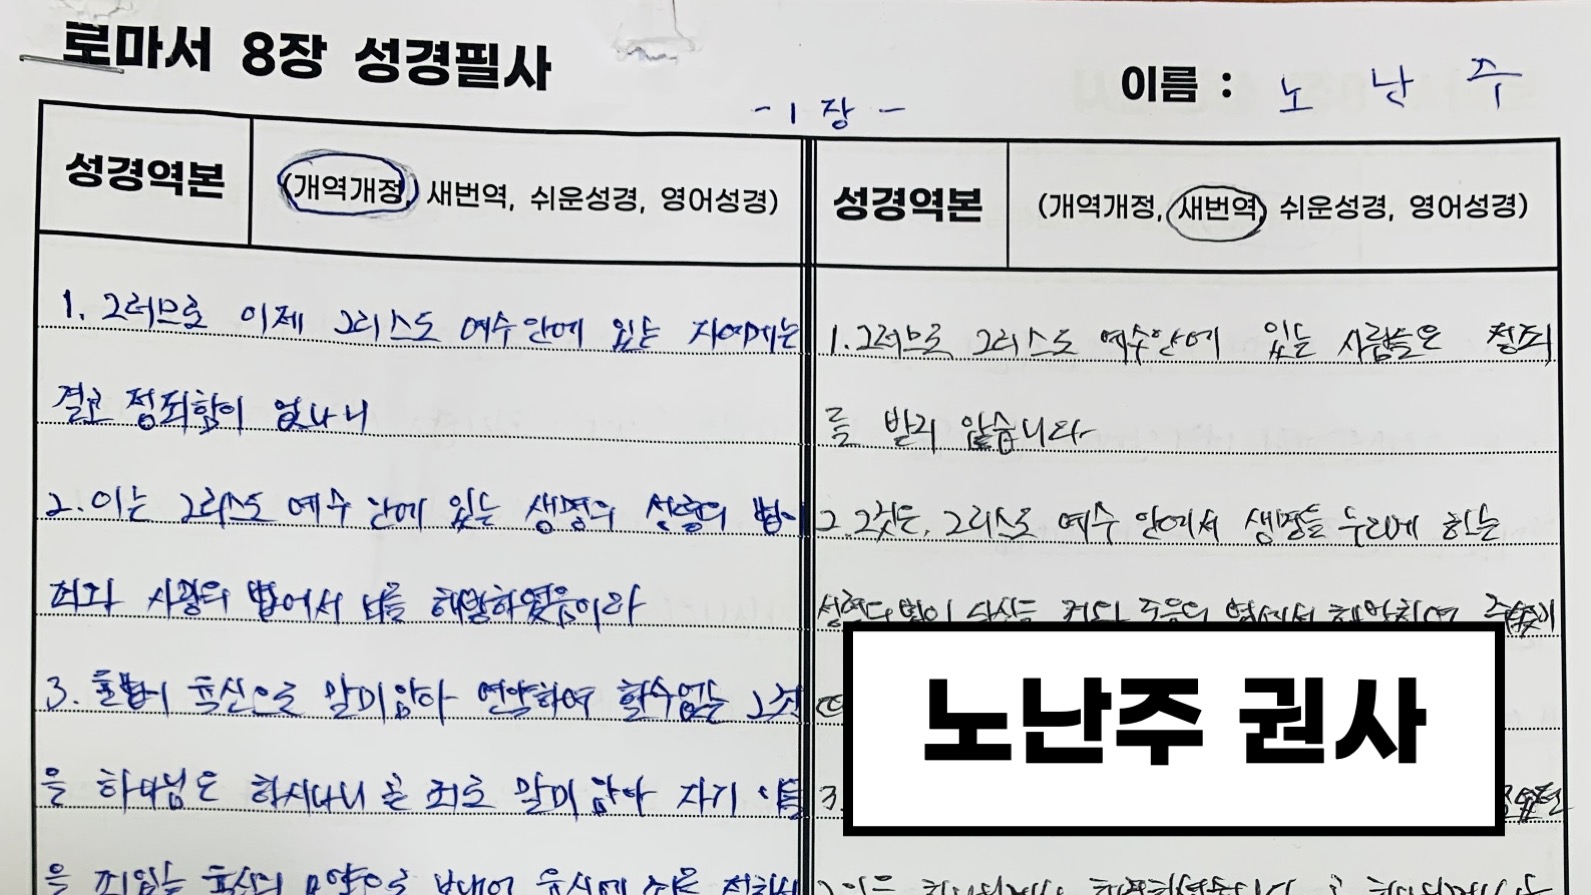 로마서 8장 성경필사
이름 : 노 난 주
- 1 장 -
성경역본 (개역개정, 새번역, 쉬운성경, 영어성경)
1. 그러므로 이제 그리스도 예수 안에 있는 자에게는
결코 정죄함이 없나니
2. 이는 그리스도 예수 안에 있는 생명의 성령의 법이
죄와 사망의 법에서 너를 해방하였음이라
3. 율법이 육신으로 말미암아 연약하여 할수없는 그것
을 하나님은 하시나니 곧 죄로 말미암아 자기 아들
을 죄있는 육신의 모양으로 보내어 육신에 죄를 정하사
성경역본 (개역개정, 새번역, 쉬운성경, 영어성경)
1. 그러므로 그리스도 예수 안에 있는 사람들은 정죄
를 받지 않습니다
2. 그것은, 그리스도 예수 안에서 생명을 누리게 하는
성령의 법이 당신을 죄와 죽음의 법에서 해방하여
3.
노난주 권사